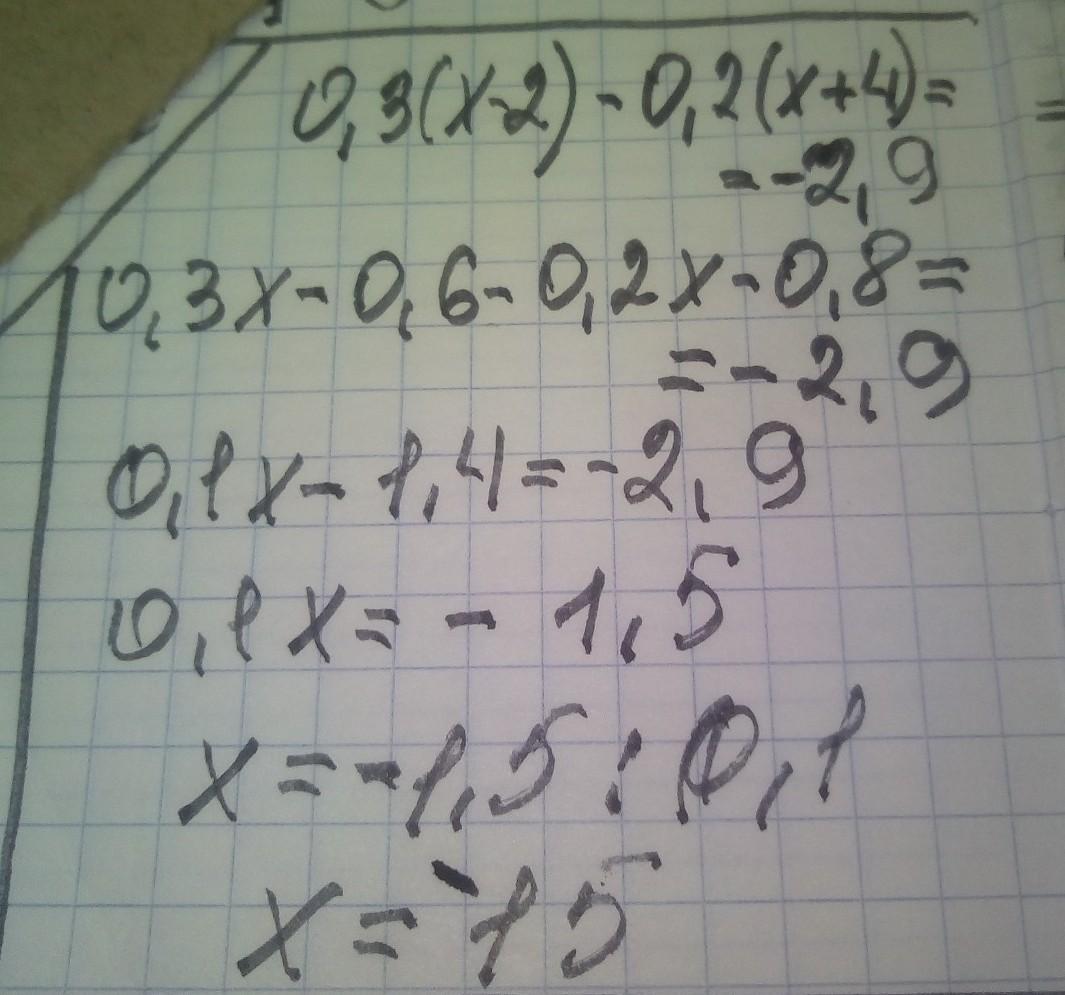 0,3(x-2)-0,2(x+4)=
=-2,9
0,3x-0,6-0,2x-0,8=
=-2,9
0,1x-1,4=-2,9
0,1x=-1,5
x=-1,5:0,1
x=-15